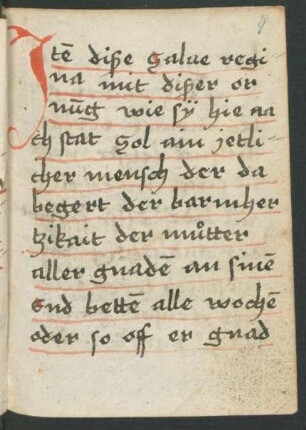 Jtē diße Salue regi
na mit dißer or
nūg wie sÿ hie na
ch stat Sol ain jetli-
cher mensch der da
begert der barmher
tzikait der můtter
aller gnadē an sinē
end bettē alle wochē
oder so off er gnad